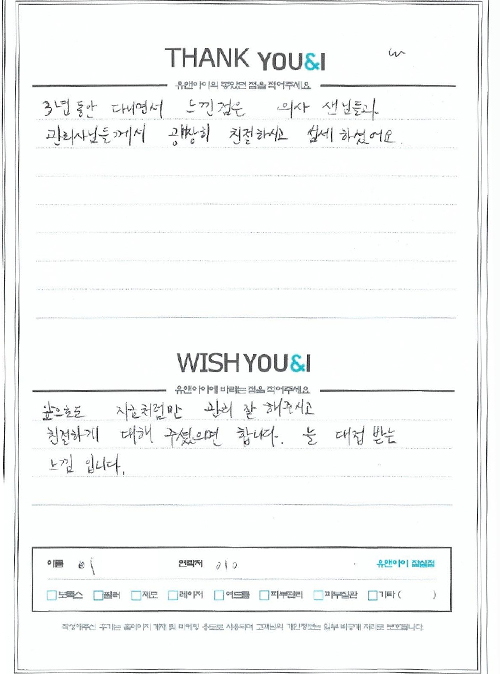 THANK YOU&I
유앤아이의 좋았던 점을 적어주세요
3년 동안 다니면서 느낀점은 의사 샌님들과
관리사님들께서 굉장히 친절하시고 섬세 하셨어요.
WISH YOU&I
유앤아이에 바라는 점을 적어주세요
앞으로도 지금처럼만 관리 잘 해주시고
친절하게 대해 주셨으면 합니다. 늘 대접 받는
느낌 입니다.
이름 연락처 010 유앤아이 잠실점
보톡스 필러 제모 레이저 여드름 피부관리 피부질환 기타 ( )
작성해주신 후기는 홈페이지 게재 및 마케팅 용도로 사용되며 고객님의 개인정보는 일부 비공개 처리로 보호됩니다.